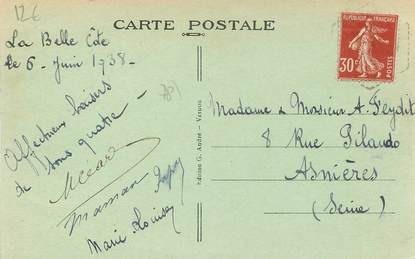 12€
CARTE POSTALE
La Belle Côte
le 6 - Juin 1938 -
Affectueux baisers
de tous quatre -
Maman
Marie Louise
Edition G. André - Vernou
REPUBLIQUE FRANÇAISE
30c
POSTES
Madame & Monsieur A. Feydit
8 Rue Pilaudo
Asnières
(Seine)